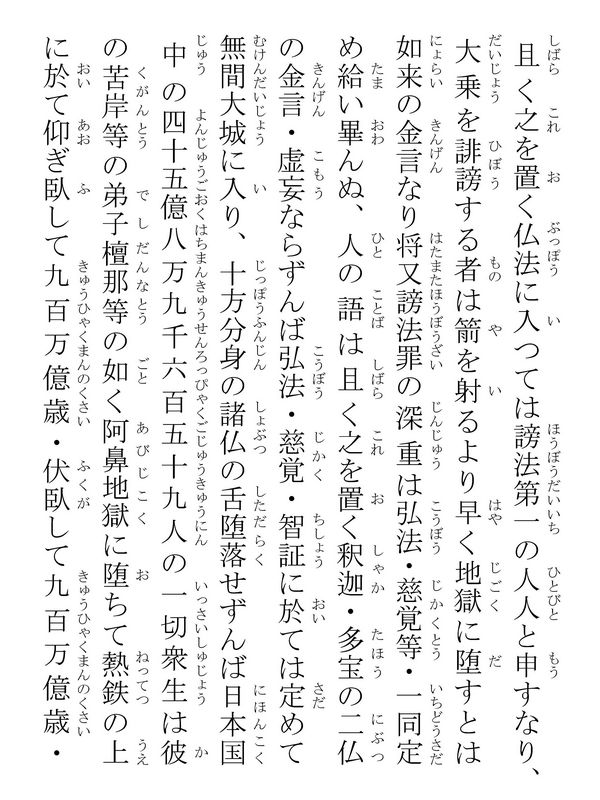 且く之を置く仏法に入つては謗法第一の人人と申すなり、
大乗を誹謗する者は箭を射るより早く地獄に堕すとは
如来の金言なり将又謗法罪の深重は弘法・慈覚等・一同定
め給い畢んぬ、人の語は且く之を置く釈迦・多宝の二仏
の金言・虚妄ならずんば弘法・慈覚・智証に於ては定めて
無間大城に入り、十方分身の諸仏の舌堕落せずんば日本国
中の四十五億八万九千六百五十九人の一切衆生は彼
の苦岸等の弟子檀那等の如く阿鼻地獄に堕ちて熱鉄の上
に於て仰ぎ臥して九百万億歳・伏臥して九百万億歳・